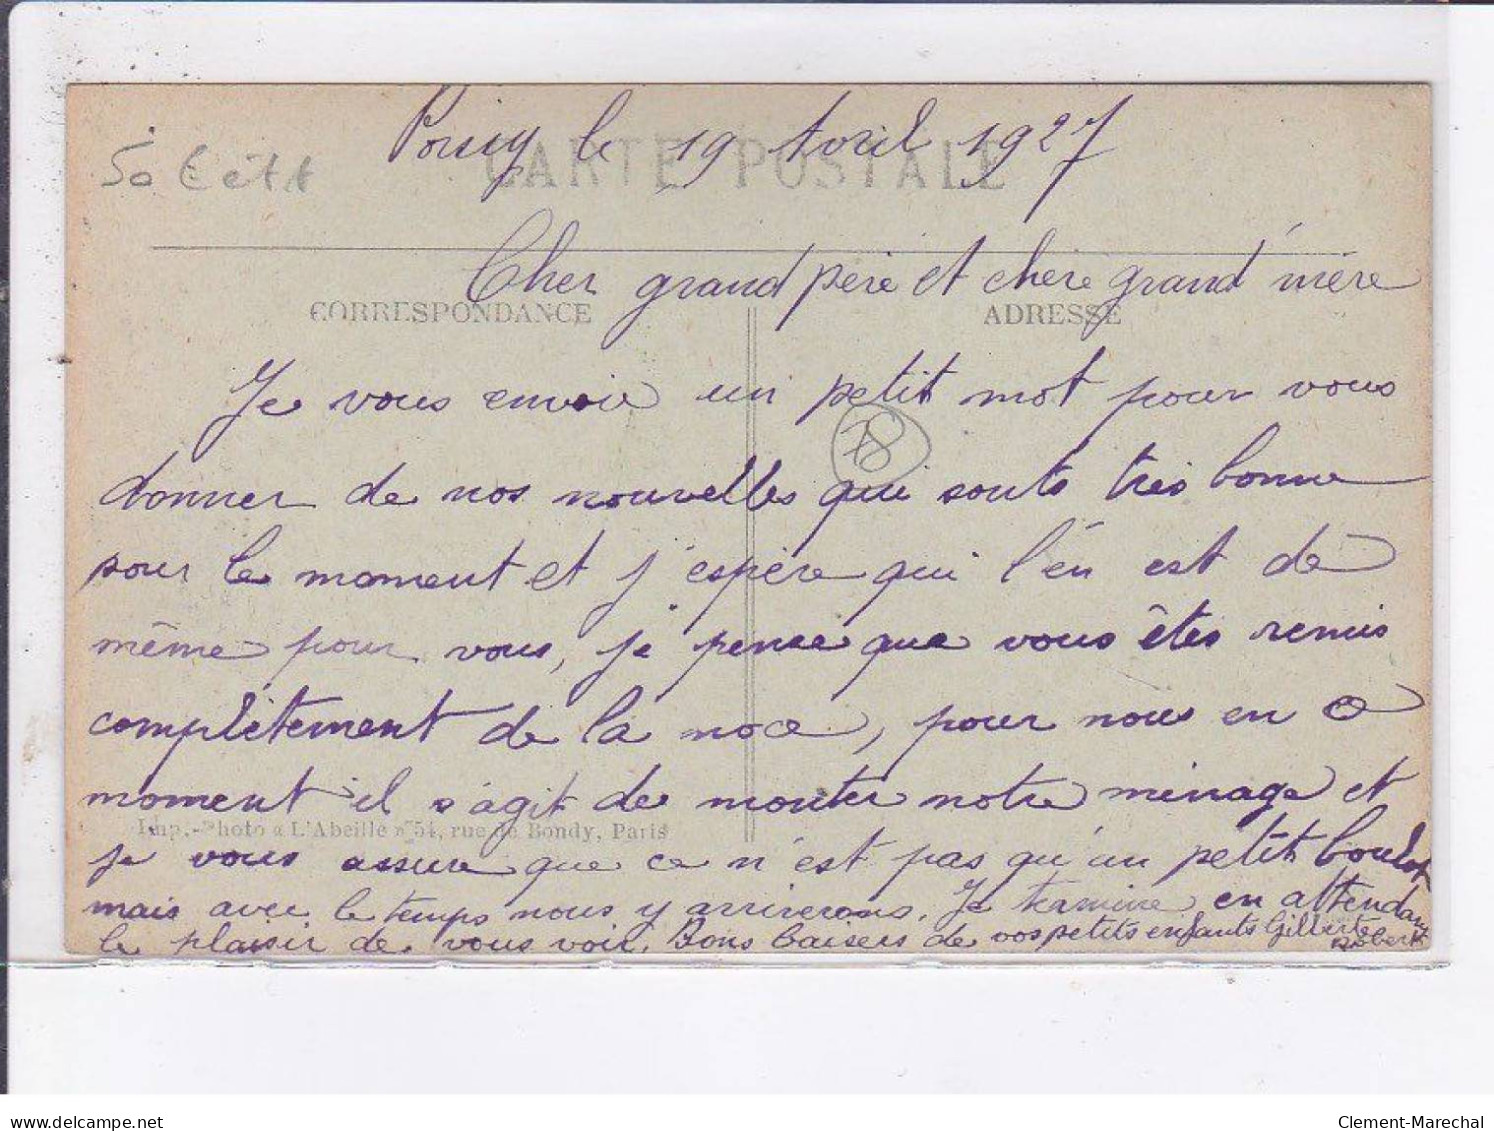 Poissy le 19 Avril 1927
CARTE POSTALE
Cher grand père et chère grand'mère
CORRESPONDANCE
ADRESSE
Je vous envoie un petit mot pour vous
78
donner de nos nouvelles qui sonts très bonne
pour le moment et j'espère qui l'én est de
même pour vous, je pense que vous êtes remis
complètement de la noce, pour nous en ce
moment il s'agit de monter notre ménage et
Imp.-Photo a L'Abeille n°54, rue de Bondy, Paris
je vous assure que ce n'est pas qu'un petit boulot
mais avec le temps nous y arriverons. Je termine en attendant
le plaisir de vous voir. Bons baisers de vos petits enfants Gilberte
Robert
delcampe.net
Clement-Marechal